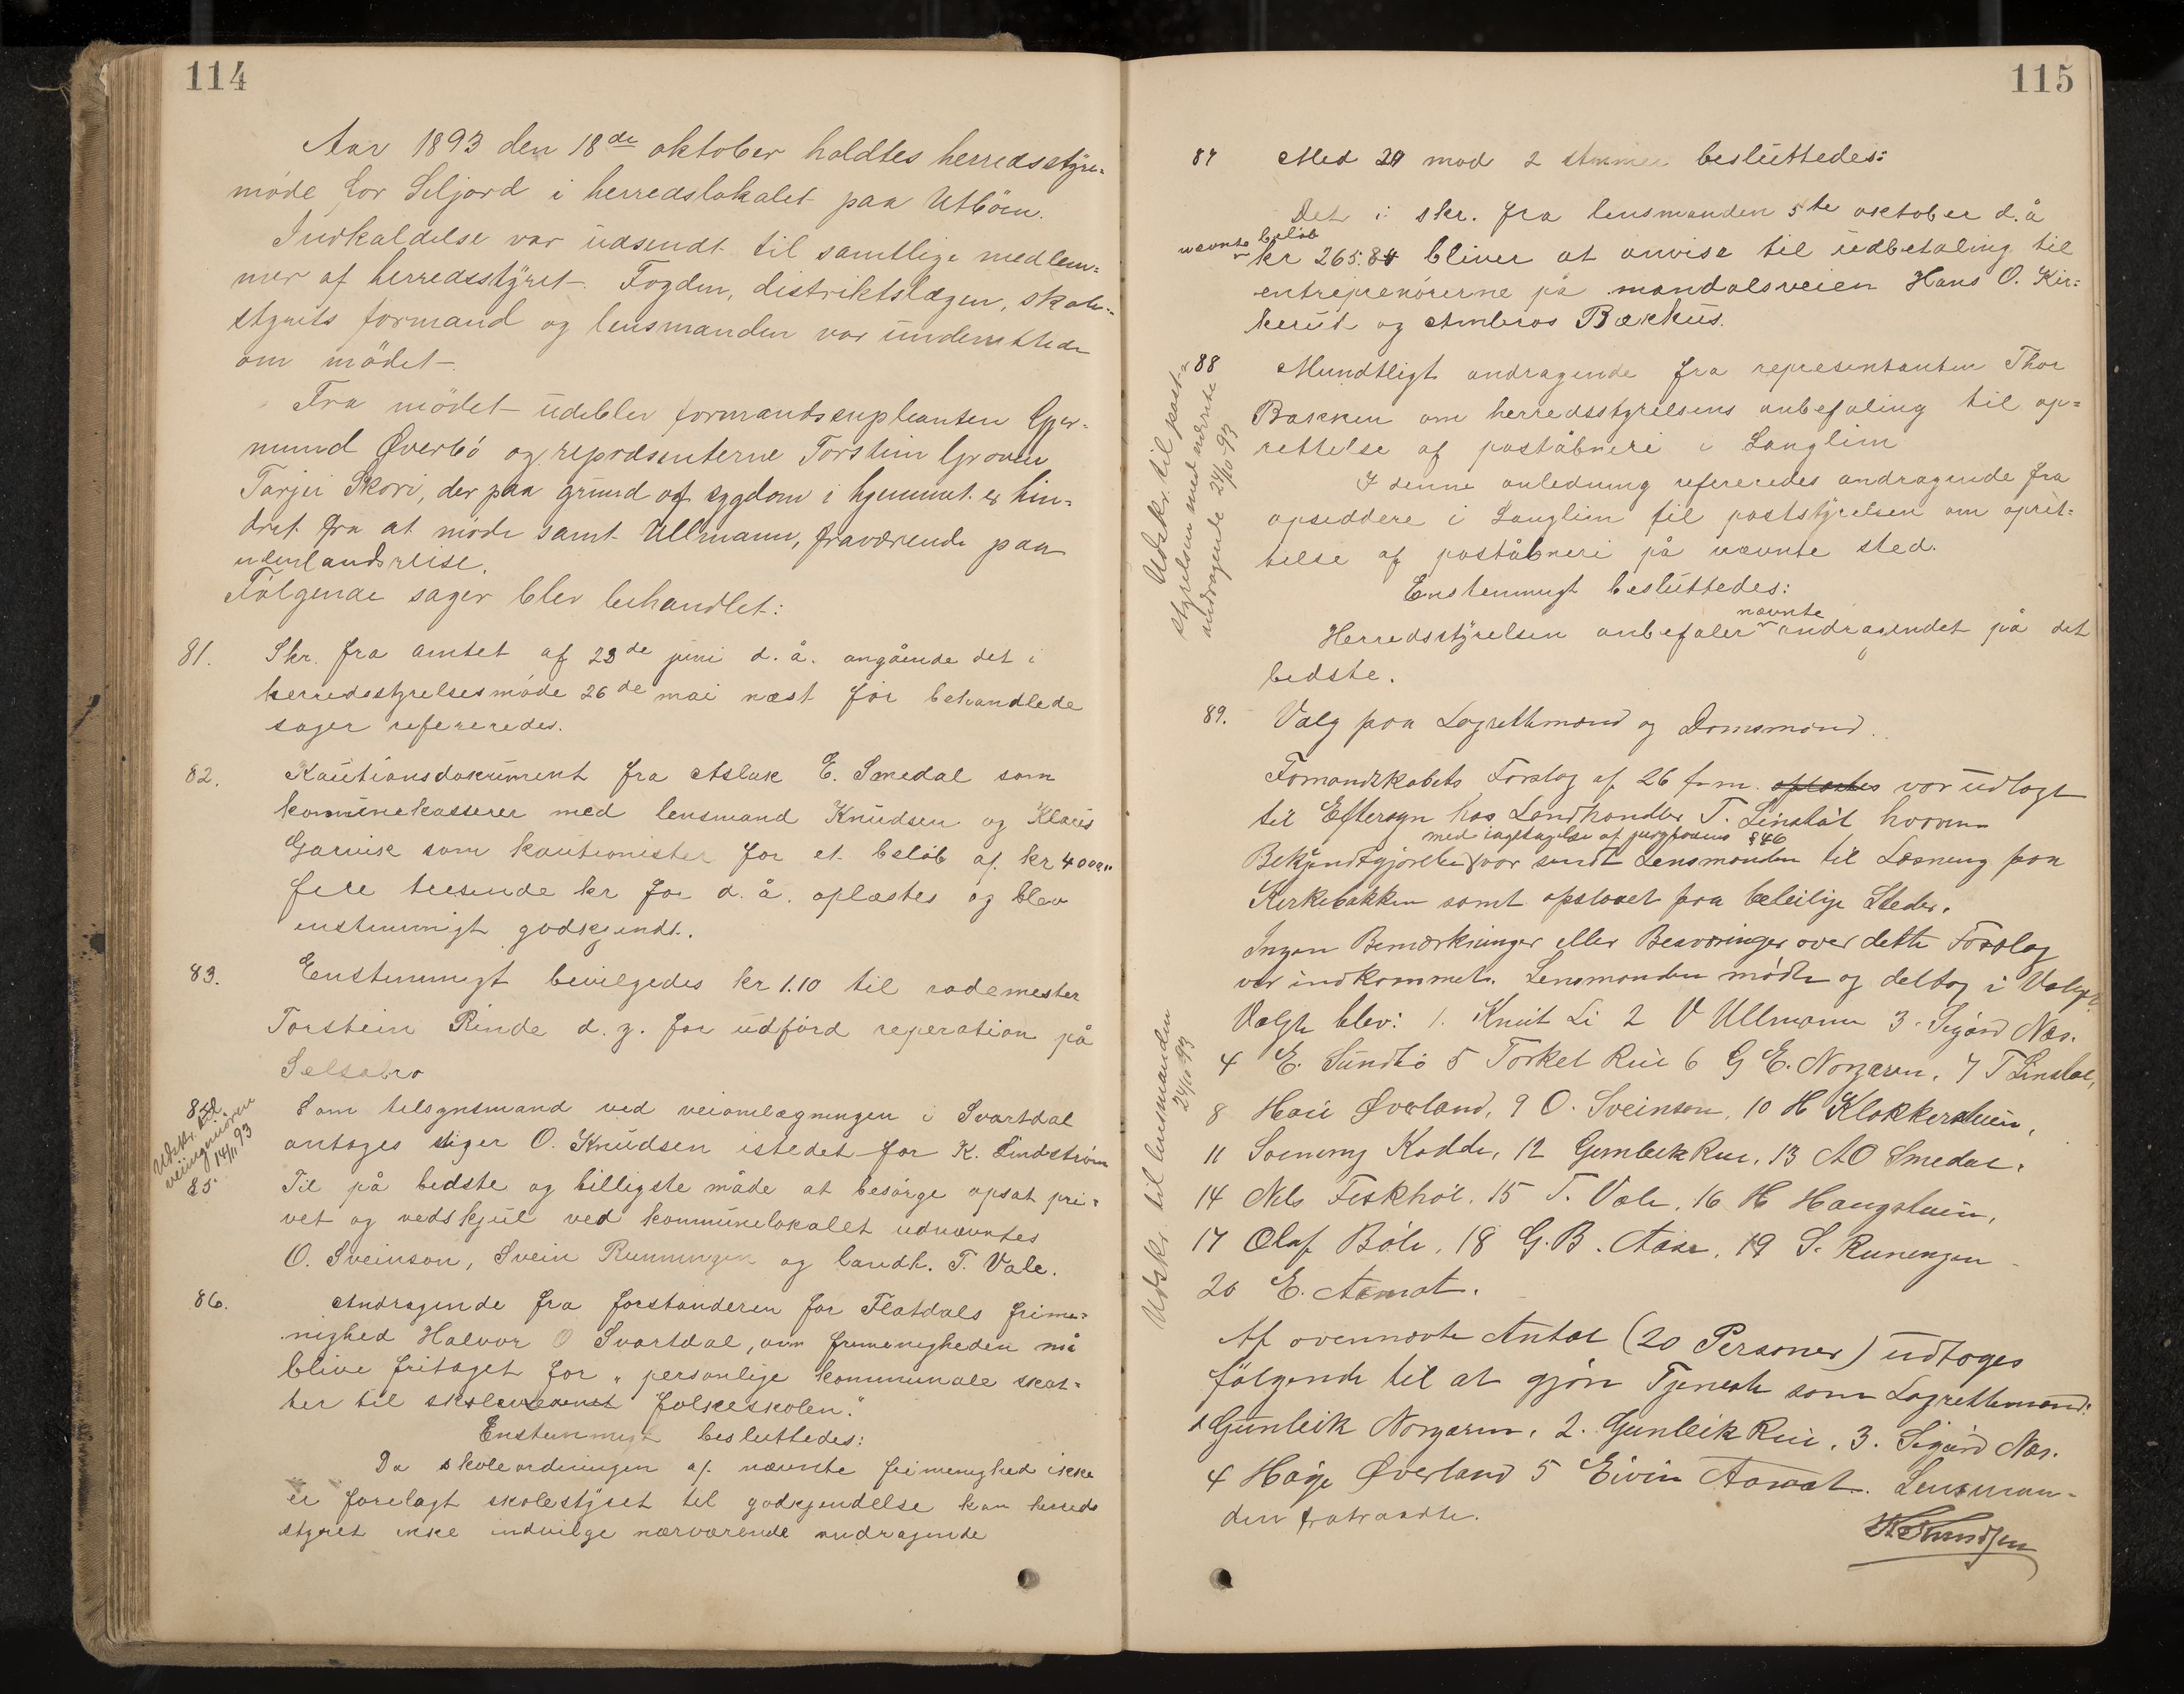 114
Aar 1893 den 18de oktober holdtes herredsstyre=
møde for Siljord i herredslokalet paa Utbøen.
Indkaldelse var udsendt til samtlige medlem=
mer af herredsstyret. Fogden, distriktslægen, skole=
styrets formand og lensmanden var underrettede
om mödet.
Fra mödet udeblev formandssupleanten Gjer=
mund Øverbö og repræsenterne Torstein Groven
Tarjei Skori, der paa grund af sygdom i hjemmet er hin=
dret fra at möde samt Ullmann, fraværende paa
udenlandsreise.
Fölgende sager blev behandlet:
81. Skr. fra amtet af 23de juni d. å. angående det i
herredsstyrelsesmöde 26de mai næst för behandlede
sager refereredes.
82. Kautionsdokument fra Aslak E. Smedal som
kommunekasserer med lensmand Knudsen og Klaus
Garvik som kautionister for et belöb af kr 4000,,
fire tusende kr for d. å. oplæstes og blev
enstemmigt godkjendt.
83. Eenstemmigt bevilgedes kr 1.10 til rodemester
Torstein Rinde d. y. for udförd reperation på
Selsabro
84. Som tilsynsmand ved veiomlægningen i Svartdal
Udskr. til
veiingeniören
14/11 93
antoges O. Knudsen istedet for K. Lindström
85. Til på bedste og billigste måde at besörge opsat pri=
vet og vedskjul ved kommunelokalet udnævntes
O. Sveinson, Svein Runningen og landh. T. Vale.
86. Andragende fra forstanderen for Flatdals frime=
nighed Halvor O Svartdal, om frimenigheden må
blive fritaget for „personlige kommunale skat=
ter til folkeskolen."
Enstemmigt besluttedes:
Da skoleordningen af nævnte frimenighed ikke
er forelagt skolestyret til godkjendelse kan herreds
styret ikke indvilge nærværende andragende
115
87 Med 20 mod 2 stemmer besluttedes:
Det i skr. fra lensmanden 5te oktober d. å
nævnte belöb
kr 265.84 bliver at anvise til udbetaling til
entreprenörerne på mandalsveien Hans O. Kir=
kerut og Ambros Bækhus.
88 Mundtligt andragende fra representanten Thor
Bakken om herredsstyrelsens anbefaling til op=
rettelse af poståbneri i Langlim
I denne anledning refereredes andragende fra
opsiddere i Langlim til poststyrelsen om opret=
telse af poståbneri på nævnte sted.
Udskr. til post=
styrelsen med nævnte
andragende 24/10 93
Enstemmigt besluttedes:
Herredsstyrelsen anbefaler nævnte andragendet på det
bedste.
89. Valg paa Lagrettemænd og Domsmænd.
Formandskabets Forslag af 26 f. m. oplæstes var udlagt
til Eftersyn hos Landhandler T. Linstöt hvorom
med iagttagelse af jurylovens § 46
Bekjendtgjörelse var sendt Lensmanden til Læsning paa
Kirkebakken samt opslaaet paa beleilige Steder.
Ingen Bemærkninger eller Besværinger over dette Forslag
var indkommet. Lensmanden mödte og deltog i Valget.
Udskr. til lensmanden
24/10 93
Valgte blev: 1. Knut Li 2 V Ullmann 3. Sigurd Næs.
4 E. Sundbö 5 Torkel Rui 6 G E. Norgaren, 7 T Linstöt,
8 Haie Øverland, 9 O. Sveinson, 10 H Klokkersteien,
11 Kodde, 12 Gunleik Rui, 13 AO Smedal,
14 Nils Fiskhöl, 15 T. Vale, 16 H Haugstuein,
17 Olaf Böle, 18 G. B. Aase, 19 S. Runengen
20 E. Aamot.
Af ovennævnte Antal (20 Personer) udtoges
fölgende til at gjöre Tjeneste som Lagrettemænd:
1 Gunleik Norgaren, 2. Gunleik Rui, 3. Sigurd Næs.
4 Høye Øverland 5 Eivin Aamot. Lensman=
den fratraadte.
K Knudsen